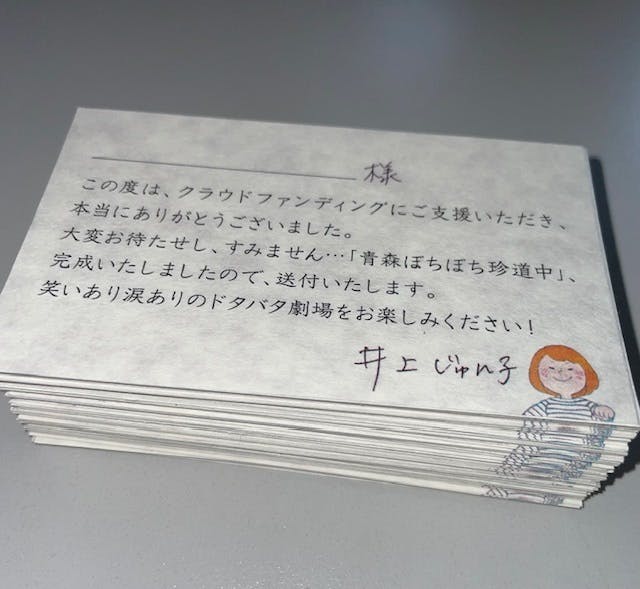 様
この度は、クラウドファンディングにご支援いただき、
本当にありがとうございました。
大変お待たせし、すみません…「青森ぼちぼち珍道中」、
完成いたしましたので、送付いたします。
笑いあり涙ありのドタバタ劇場をお楽しみください！
井上じゅん子